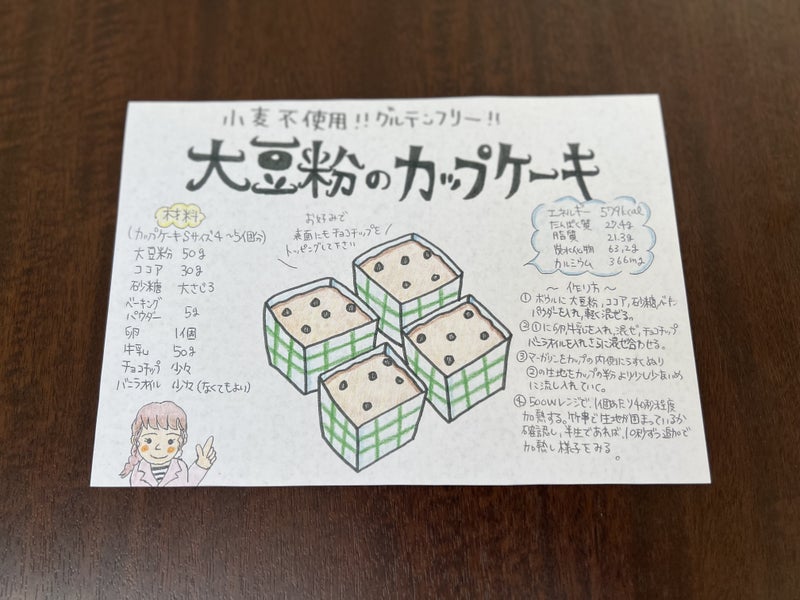 小麦不使用!!グルテンフリー!!
大豆粉のカップケーキ
材料
(カップケーキSサイズ4〜5個分)
大豆粉 50g
ココア 30g
砂糖 大さじ3
ベーキング
パウダー 5g
卵 1個
牛乳 50g
チョコチップ 少々
バニラオイル 少々(なくてもよい)
お好みで
表面にもチョコチップを
トッピングして下さい
エネルギー 579kcal
たんぱく質 27.4g
脂質 21.3g
炭水化物 63.2g
カルシウム 366mg
〜作り方〜
①ボウルに大豆粉,ココア,砂糖,ベーキング
パウダーを入れ,軽く混ぜる。
②①に卵,牛乳を入れ,混ぜ,チョコチップ
バニラオイルを入れさらに混ぜ合わせる。
③マーガリンをカップの内側にうすくぬり
②の生地をカップの半分より少し少ないめ
に流し入れていく。
④500Wレンジで,1個あたり40秒程度
加熱する。竹串で生地が固まっているか
確認し,半生であれば,10秒ずつ追加で
加熱し様子をみる。